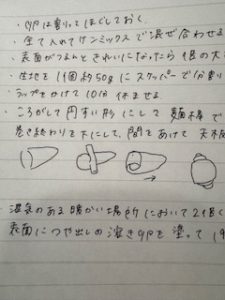 ・卵は割ってほぐしておく。
・全て入れてサンミックスで混ぜ合わせる
・表面がつるんときれいになったら 倍の大
・生地を1個約50gにスケッパーで分割
・ラップをかけて10分 休ませる
・ころがして円すい形にして 麺棒で
巻き終わりを下にして、間をあけて 天板
湿気のある暖かい場所において2倍く
表面につや出しの溶き卵を塗って 19